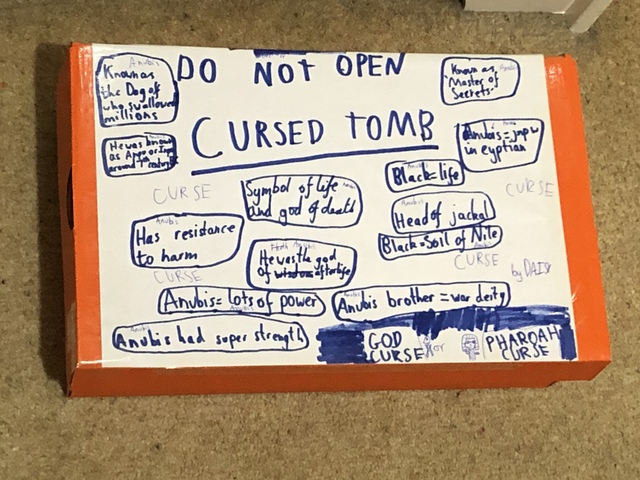 DO NOT OPEN
CURSED TOMB
Anubis
Known as
the Dog of
who swallowed
millions
He was known
as Apo or
around
Known as
Master of
Secrets
Anubis=
in eyptian
CURSE
Symbol of life
and god of death
Black=life
CURSE
Anubis
Has resistance
to harm
Anubis
Head of jackal
Black=Soil of Nile
He was the god
of afterlife
CURSE
CURSE
by DAISY
Anubis=lots of power
Anubis
Anubis brother=war deity
Anubis
Anubis had super strength
GOD
CURSE
or
PHAROAH
CURSE